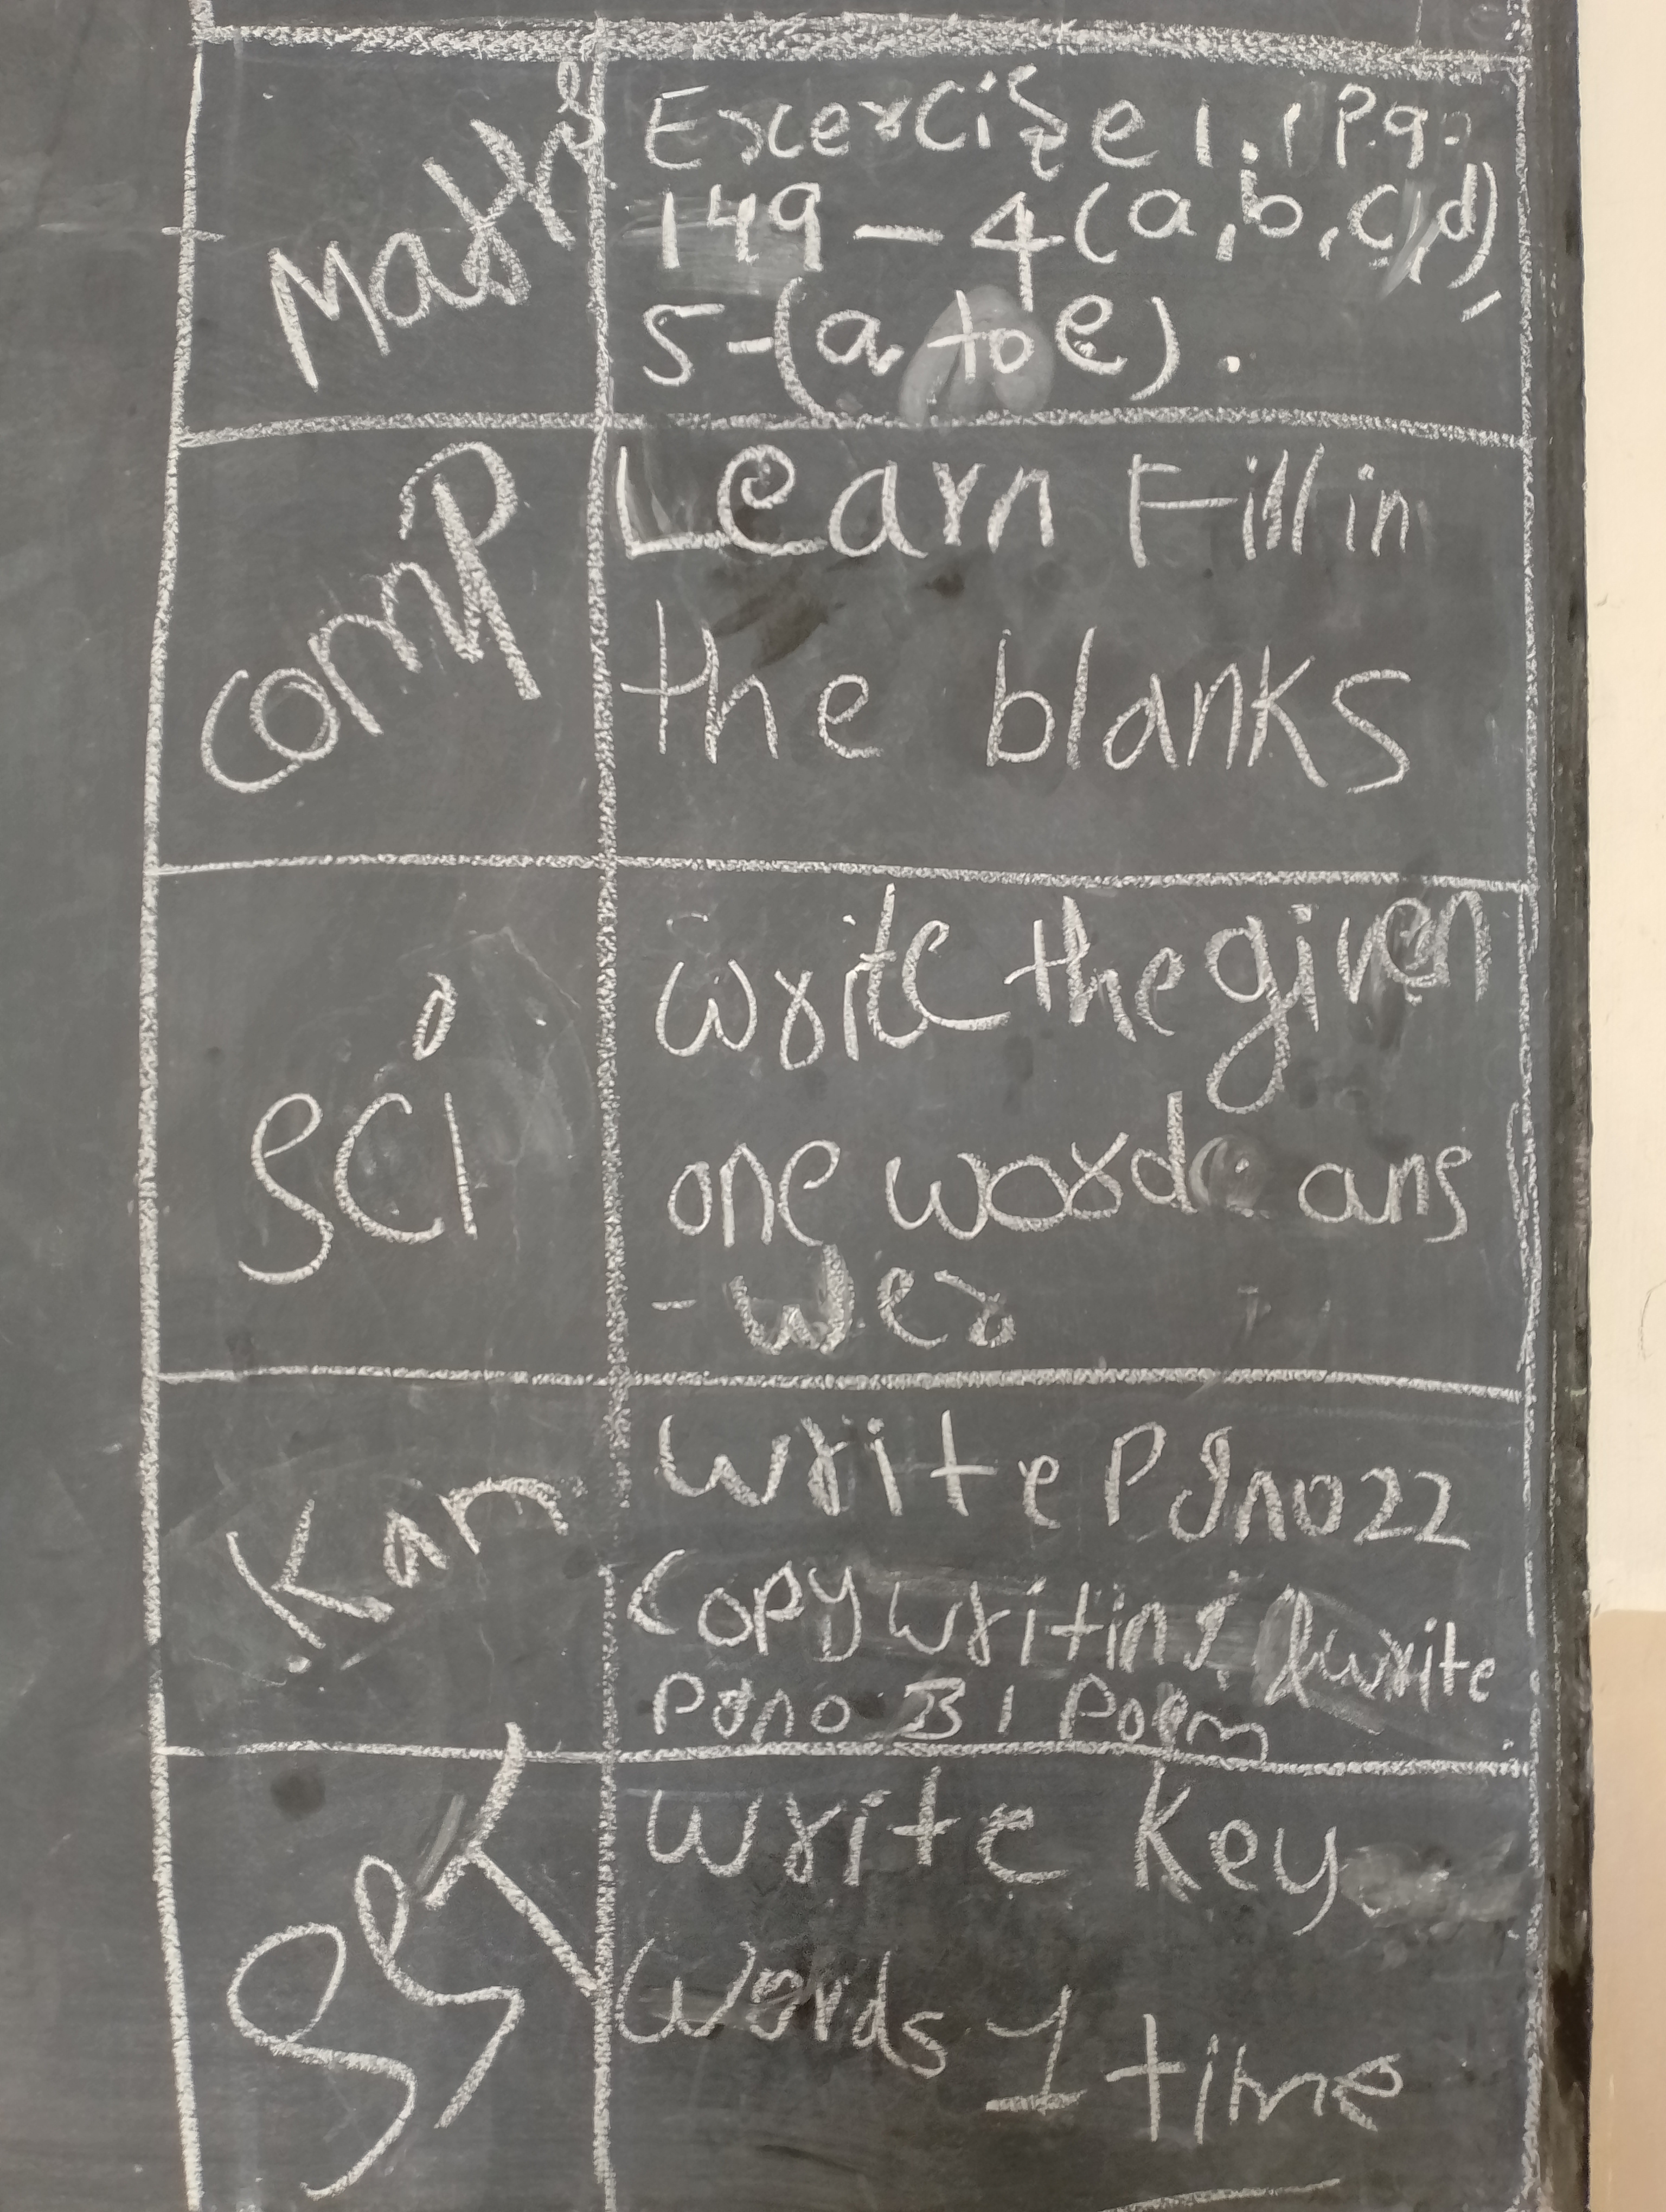 Maths
Excercise 1.1 Pg.
149 - 4 (a, b, c, d),
5 - (a to e).
Comp
Learn Fill in
the blanks
Sci
write the given
one word ans
-wer
Kan
write Pgno 22
Copy writing & write
Pgno 31 Poem
write key
words - 1 time